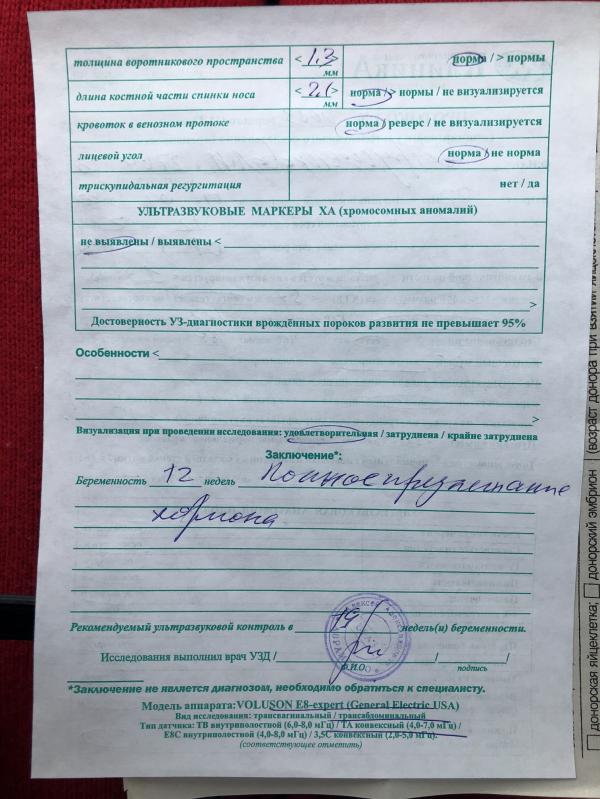 толщина воротникового пространства < 1,3 > мм норма / > нормы
длина костной части спинки носа < 2,1 > мм норма / > нормы / не визуализируется
кровоток в венозном протоке норма / реверс / не визуализируется
лицевой угол норма / не норма
трискупидальная регургитация нет / да
УЛЬТРАЗВУКОВЫЕ МАРКЕРЫ ХА (хромосомных аномалий)
не выявлены / выявлены <
>
Достоверность УЗ-диагностики врождённых пороков развития не превышает 95%
Особенности <
>
Визуализация при проведении исследования: удовлетворительная / затруднена / крайне затруднена
Заключение*:
Беременность 12 недель Полное предлежание
хориона
Рекомендуемый ультразвуковой контроль в 19 недель(и) беременности.
Исследования выполнил врач УЗД / / /
Ф.И.О. подпись
*Заключение не является диагнозом, необходимо обратиться к специалисту.
Модель аппарата: VOLUSON E8-expert (General Electric USA)
Вид исследования: трансвагинальный / трансабдоминальный
Тип датчика: ТВ внутриполостной (6,0-8,0 мГц) / ТА конвексный (4,0-7,0 мГц) /
Е8С внутриполостной (4,0-8,0 мГц) / 3,5С конвексный (2,0-5,0 мГц).
(соответствующее отметить)
донорская яйцеклетка; донорский эмбрион (возраст донора при взятии